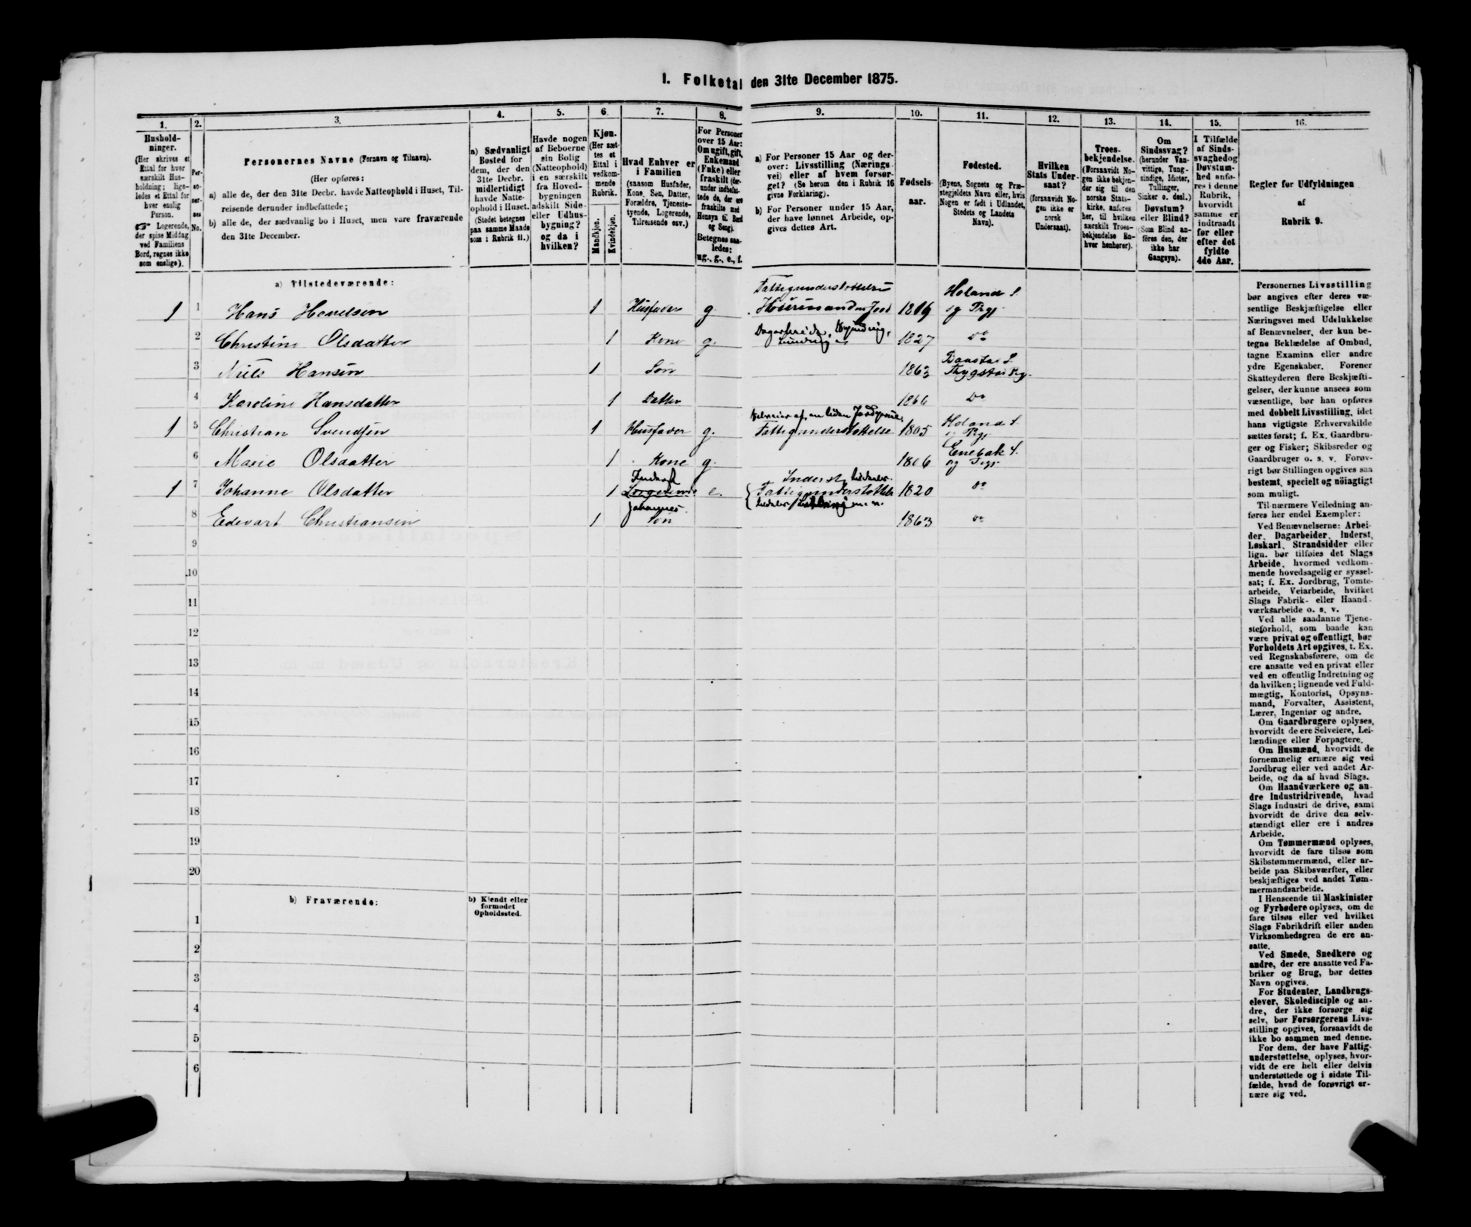 I. Folketal den 31te December 1875.
1.
Hushold-
ninger.
(Her skrives et
Ettal for
hver særskilt Hus-
holdning; lige-
ledes et Ettal for
hver enslig
Person.
Logerende,
der spise Middag
ved Familiens
Bord, regnes ikke
som enslige).
2.
Per-
so-
ner-
nes
No.
3.
Personernes Navne (Fornavn og Tilnavn).
(Her opføres:
a) alle de, der den 31te Decbr. havde Natteophold i Huset, Til-
reisende derunder indbefattede;
b) alle de, der sædvanlig bo i Huset, men vare fraværende
den 31te December.
4.
a) Sædvanligt
Bosted for
dem, der den
31te Decbr.
midlertidigt
havde Natte-
ophold i Huset.
(Stedet betegnes
paa samme Maade
som i Rubrik 11.)
5.
Havde nogen
af Beboerne
sin Bolig
(Natteophold)
i en særskilt
fra Hoved-
bygningen
adskilt Side-
eller Udhus-
bygning?
og da i
hvilken?
6.
Kjøn.
(Her sæt-
tes et
Ettal i
vedkom-
mende
Rubrik.
Mandkjøn.
Kvindekjøn.
7.
Hvad Enhver er
i Familien
(saasom Husfader,
Kone, Søn, Datter,
Forældre, Tjeneste-
tyende, Logerende,
Tilreisende osv.)
8.
For Personer
over 15 Aar:
Om ugift, gift,
Enkemand
(Enke) eller
fraskilt
Betegnes saa-
ledes:
ug., g., e., f.
9.
a) For Personer 15 Aar og der-
over: Livsstilling (Nærings-
vei) eller af hvem forsør-
get? (Se herom den i Rubrik 16
givne Forklaring).
b) For Personer under 15 Aar,
der have lønnet Arbeide, op-
gives dettes Art.
10.
Fødsels-
aar.
11.
Fødested.
(Byens, Sognets og Præ-
stegjeldets Navn eller, hvis
Nogen er født i Udlandet,
Stedets og Landets
Navn).
12.
Hvilken
Stats Under-
saat?
(forsaavidt No-
gen ikke er
norsk
Undersaat).
13.
Troes-
bekjendelse.
(Forsaavidt No-
gen ikke bekjen-
der sig til den
norske Stats-
kirke, anføres
her, til hvilken
særskilt Troes-
bekjendelse En-
hver henhører).
14.
Om
Sindssvag?
(herunder Van-
vittige, Tung-
sindige, Idioter,
Tullinger,
Sinker o. desl.)
Døvstum?
eller Blind?
(Som Blind an-
føres den, der
ikke har
Gangsyn).
15.
I Tilfælde
af Sinds-
svaghed og
Døvstum-
hed anfø-
res i denne
Rubrik,
hvorvidt
samme er
indtraadt
før eller
efter det
fyldte
4de Aar.
16.
Regler for Udfyldningen
af
Rubrik 9.
a) Tilstedeværende:
1 1 Hans Hovelsen 1 Husfader g Fattigunderstøttelse Huusmand m. Jord 1819 Høland S. og Prgj.
2 Christine Olsdatter 1 Kone g. 1827 Do
3 Niels Hansen 1 Søn 1863
4 Karoline Hansdatter 1 Datter 1866 Do
1 5 Christian Svendsen 1 Husfader g. Selveier af en liden Jordegend, Fattigunderstøttelse 1805 Høland S. og Prgj.
6 Marie Olsdatter 1 Kone g. 1806 Enebak S. og Prgj.
1 7 Johanne Olsdatter 1 e. Inderst Fattigunderstøttelse 1820 Do
8 Edevart Christiansen 1 Johannes Søn 1863 Do
9
10
11
12
13
14
15
16
17
18
19
20
b) Fraværende:
b) Kjendt eller
formodet
Opholdssted.
1
2
3
4
5
6
Personernes Livsstilling
bør angives efter deres væ-
sentlige Beskjæftigelse eller
Næringsvei med Udelukkelse
af Benævnelser, der kun be-
tegne Beklædelse af Ombud,
tagne Examina eller andre
ydre Egenskaber. Forener
Skatteyderen flere Beskjæfti-
gelser, der kunne ansees som
væsentlige, bør han opføres
med dobbelt Livsstilling, idet
hans vigtigste Erhvervskilde
sættes først; f. Ex. Gaardbru-
ger og Fisker; Skibsreder og
Gaardbruger o. s. v. Forøv-
rigt bør Stillingen opgives saa
bestemt, specielt og nøiagtigt
som muligt.
Til nærmere Veiledning an-
føres her endel Exempler:
Ved Benævnelserne: Arbei-
der, Dagarbeider, Inderst,
Løskarl, Strandsidder eller
lign. bør tilføies det Slags
Arbeide, hvormed vedkom-
mende hovedsagelig er syssel-
sat; f. Ex. Jordbrug, Tomte-
arbeide, Veiarbeide, hvilket
Slags Fabrik- eller Haand-
værksarbeide o. s. v.
Ved alle saadanne Tjene-
steforhold, som baade kan
være privat og offentligt, bør
Forholdets Art opgives, t. Ex.
ved Regnskabsførere, om de
ere ansatte ved en privat eller
ved en offentlig Indretning og
da hvilken; lignende ved Fuld-
mægtig, Kontorist, Opsyns-
mand, Forvalter, Assistent,
Lærer, Ingeniør og andre.
Om Gaardbrugere oplyses,
hvorvidt de ere Selveiere, Lei-
lændinge eller Forpagtere.
Om Husmænd, hvorvidt de
fornemmelig ernære sig ved
Jordbrug eller ved andet Ar-
beide, og da af hvad Slags.
Om Haandværkere og an-
dre Industridrivende, hvad
Slags Industri de drive, samt
hvorvidt de drive den selv-
stændigt eller ere i andres
Arbeide.
Om Tømmermænd oplyses,
hvorvidt de fare tilsøs som
Skibstømmermænd, eller ar-
beide paa Skibsværfter, eller
beskjæftiges ved andet Tøm-
mermandsarbeide.
I Henseende til Maskinister
og Fyrbødere oplyses, om de
fare tilsøs eller ved hvilket
Slags Fabrikdrift eller anden
Virksomhedsgren de ere an-
satte.
Ved Smede, Snedkere og
andre, der ere ansatte ved Fa-
briker og Brug, bør dettes
Navn opgives.
For Studenter, Landbrugs-
elever, Skoledisciple og an-
dre, der ikke forsørge sig
selv, bør Forsørgerens Livs-
stilling opgives, forsaavidt de
ikke bo sammen med denne.
For dem, der have Fattig-
understøttelse, oplyses, hvor-
vidt de ere helt eller delvis
understøttede og i sidste Til-
fælde, hvad de forøvrigt er-
nære sig ved.